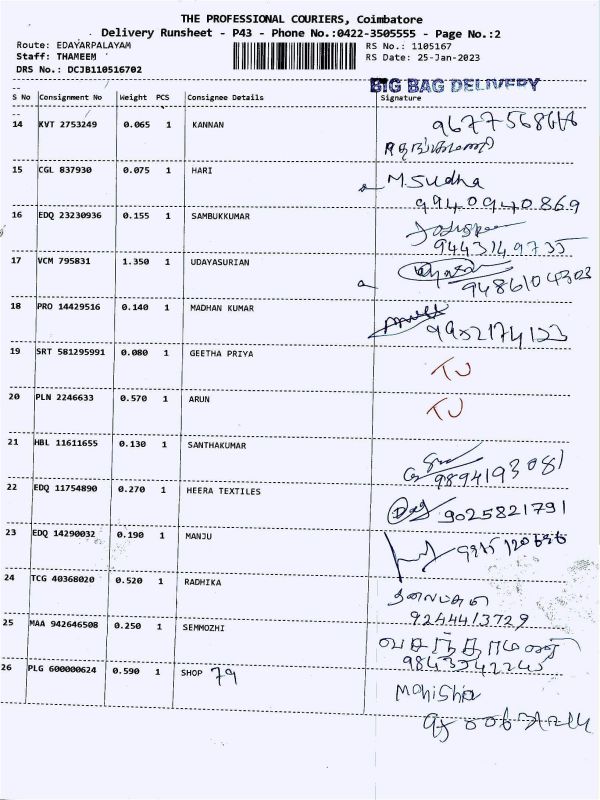 THE PROFESSIONAL COURIERS, Coimbatore
Delivery Runsheet - P43 - Phone No.:0422-3505555 - Page No.:2
Route: EDAYARPALAYAM RS No.: 1105167
Staff: THAMEEM RS Date: 25-Jan-2023
DRS No.: DCJB110516702
BIG BAG DELIVERY
S No Consignment No Weight PCS Consignee Details Signature
14 KVT 2753249 0.065 1 KANNAN
15 CGL 837930 0.075 1 HARI M.Sudha
9940940869
16 EDQ 23230936 0.155 1 SAMBUKKUMAR
9443149735
17 VCM 795831 1.350 1 UDAYASURIAN
9486104303
18 PRO 14429516 0.140 1 MADHAN KUMAR
9952174123
19 SRT 581295991 0.080 1 GEETHA PRIYA TJ
20 PLN 2246633 0.570 1 ARUN TJ
21 HBL 11611655 0.130 1 SANTHAKUMAR
9894193081
22 EDQ 11754890 0.270 1 HEERA TEXTILES 9025821791
23 EDQ 14290032 0.190 1 MANJU
24 TCG 40368020 0.520 1 RADHIKA
9244413729
25 MAA 942646508 0.250 1 SEMMOZHI
26 PLG 600000624 0.590 1 SHOP 79